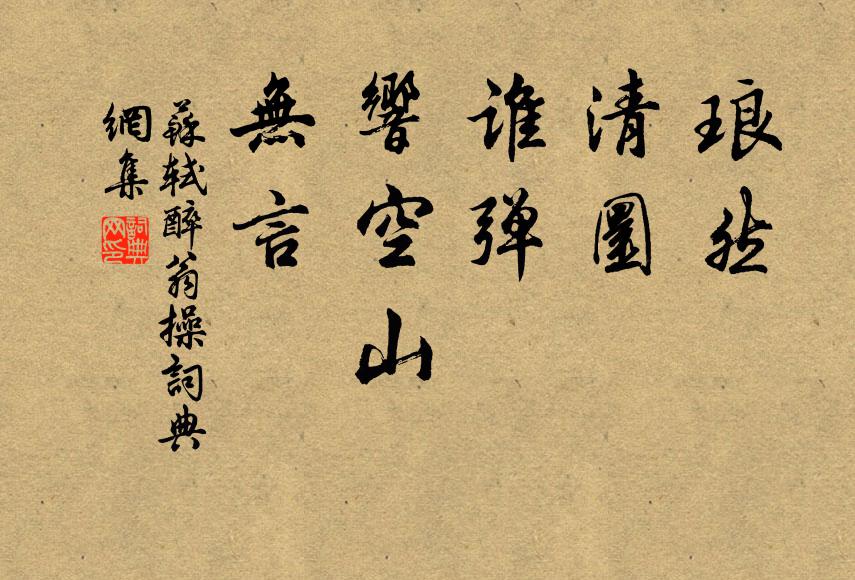 琅然
清圜
谁弹
響空山
無言
蘇軾醉翁操詞典
網集
詞典
网印